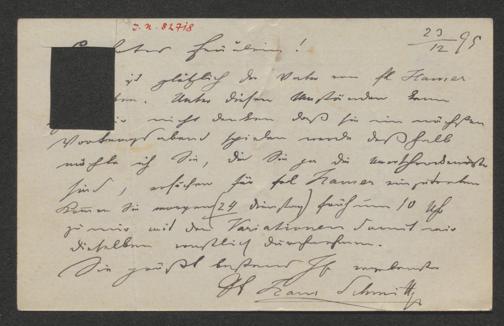 J.N. 82718
23/12 95
Fräulein!
ist plötzlich der Vater von Frl Kramer
. Unter diesen Umständen kann
nicht denken daß sie im nächsten
Vortragsabend spielen werde deßhalb
möchte ich Sie, die Sie ja die
sind, ersuchen für Frl Kramer einzutreten
Kommen Sie morgen (24 Dienstag) früh um 10 Uhr
zu mir mit den Variationen damit wir
dieselben durchnehmen.
Sie grüßt bestens Ihr
Hans Schmitt